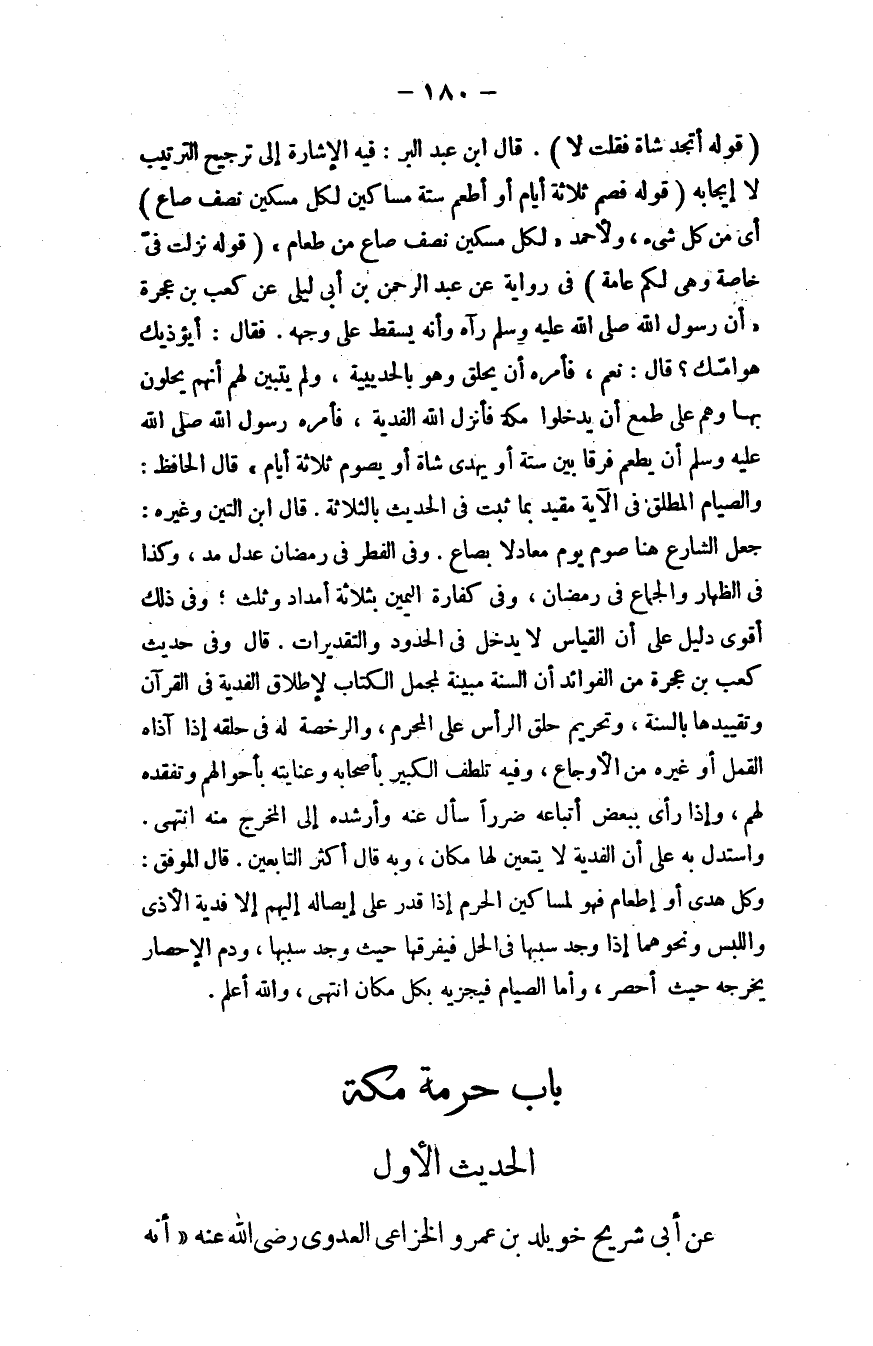 – ١٨٠ –
( قوله أتجد شاة فقلت لا ) . قال ابن عبد البر : فيه الإشارة إلى ترجيح الترتيب
لا إيجابه ( قوله فصم ثلاثة أيام أو أطعم ستة مساكين لكل مسكين نصف صاع )
أى من كل شىء ، ولأحمد « لكل مسكين نصف صاع من طعام » ( قوله نزلت فىّ
خاصة وهى لكم عامة ) فى رواية عن عبد الرحمن بن أبى ليلى عن كعب بن عجرة
« أن رسول الله صلى الله عليه وسلم رآه وأنه يسقط على وجهه . فقال : أيؤذيك
هوامّك ؟ قال : نعم ، فأمره أن يحلق وهو بالحديبية ، ولم يتبين لهم أنهم يحلون
بها وهم على طمع أن يدخلوا مكة فأنزل الله الفدية ، فأمره رسول الله صلى الله
عليه وسلم أن يطعم فرقا بين ستة أو يهدى شاة أو يصوم ثلاثة أيام » قال الحافظ :
والصيام المطلق فى الآية مقيد بما ثبت فى الحديث بالثلاثة . قال ابن التين وغيره :
جعل الشارع هنا صوم يوم معادلا بصاع . وفى الفطر فى رمضان عدل مد ، وكذا
فى الظهار والجماع فى رمضان ، وفى كفارة اليمين بثلاثة أمداد وثلث ؛ وفى ذلك
أقوى دليل على أن القياس لا يدخل فى الحدود والتقديرات . قال وفى حديث
كعب بن عجرة من الفوائد أن السنة مبينة لمجمل الكتاب لإطلاق الفدية فى القرآن
وتقييدها بالسنة ، وتحريم حلق الرأس على المحرم ، والرخصة له فى حلقه إذا آذاه
القمل أو غيره من الأوجاع ، وفيه تلطف الكبير بأصحابه وعنايته بأحوالهم وتفقده
لهم ، وإذا رأى ببعض أتباعه ضرراً سأل عنه وأرشده إلى المخرج منه انتهى .
واستدل به على أن الفدية لا يتعين لها مكان ، وبه قال أكثر التابعين . قال الموفق :
وكل هدى أو إطعام فهو لمساكين الحرم إذا قدر على إيصاله إليهم إلا فدية الأذى
واللبس ونحوهما إذا وجد سببها فى الحل فيفرقها حيث وجد سببها ، ودم الإحصار
يخرجه حيث أحصر ، وأما الصيام فيجزيه بكل مكان انتهى ، والله أعلم .
باب حرمة مكة
الحديث الأول
عن أبى شريح خويلد بن عمرو الخزاعى العدوى رضى الله عنه « أنه